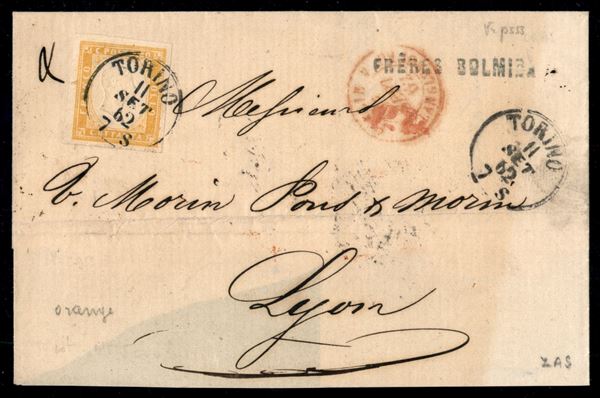 TORINO
11
SET
62
7 S
FRÈRES BOLMIDA
TORINO
11
SET
62
7 S
Messieurs
V. Morin Pons & Morin
Lyon
orange
ZAS